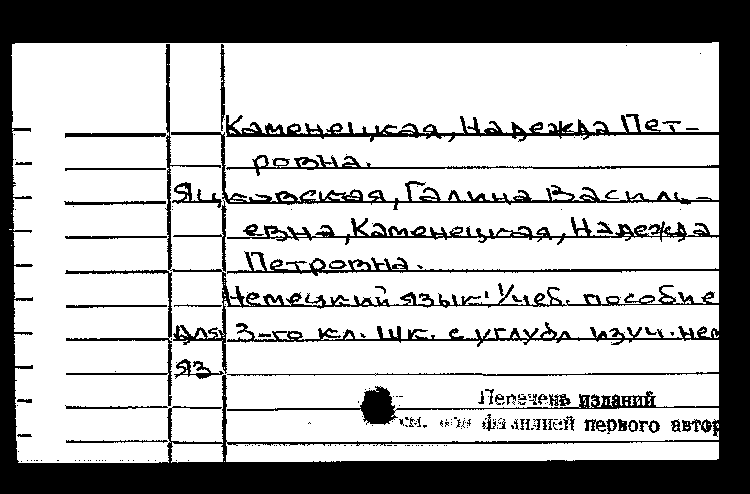 Каменецкая, Надежда Пет-
ровна.
Яцковская, Галина Василь-
евна, Каменецкая, Надежда
Петровна.
Немецкий язык: Учеб. пособие
для 3-го кл. шк. с углубл. изуч. нем
яз
Перечень изданий
см. под фамилией первого автор